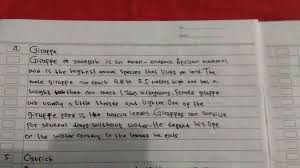 4. Giraffe
Giraffe or zarapah is an even-endemic African mammal
and is the highest animal species that lives on land. The
male giraffe can reach 4.8 to 5.5 meters high and has a
weight that can reach 1.360 kilograms. female giraffe
are usually a little shorter and lighter. One of the
giraffe food is the acacia leaves. Giraffes can survive
for several days without water. He depend his life
or the water content in the leaves he eats
5. Ostrich